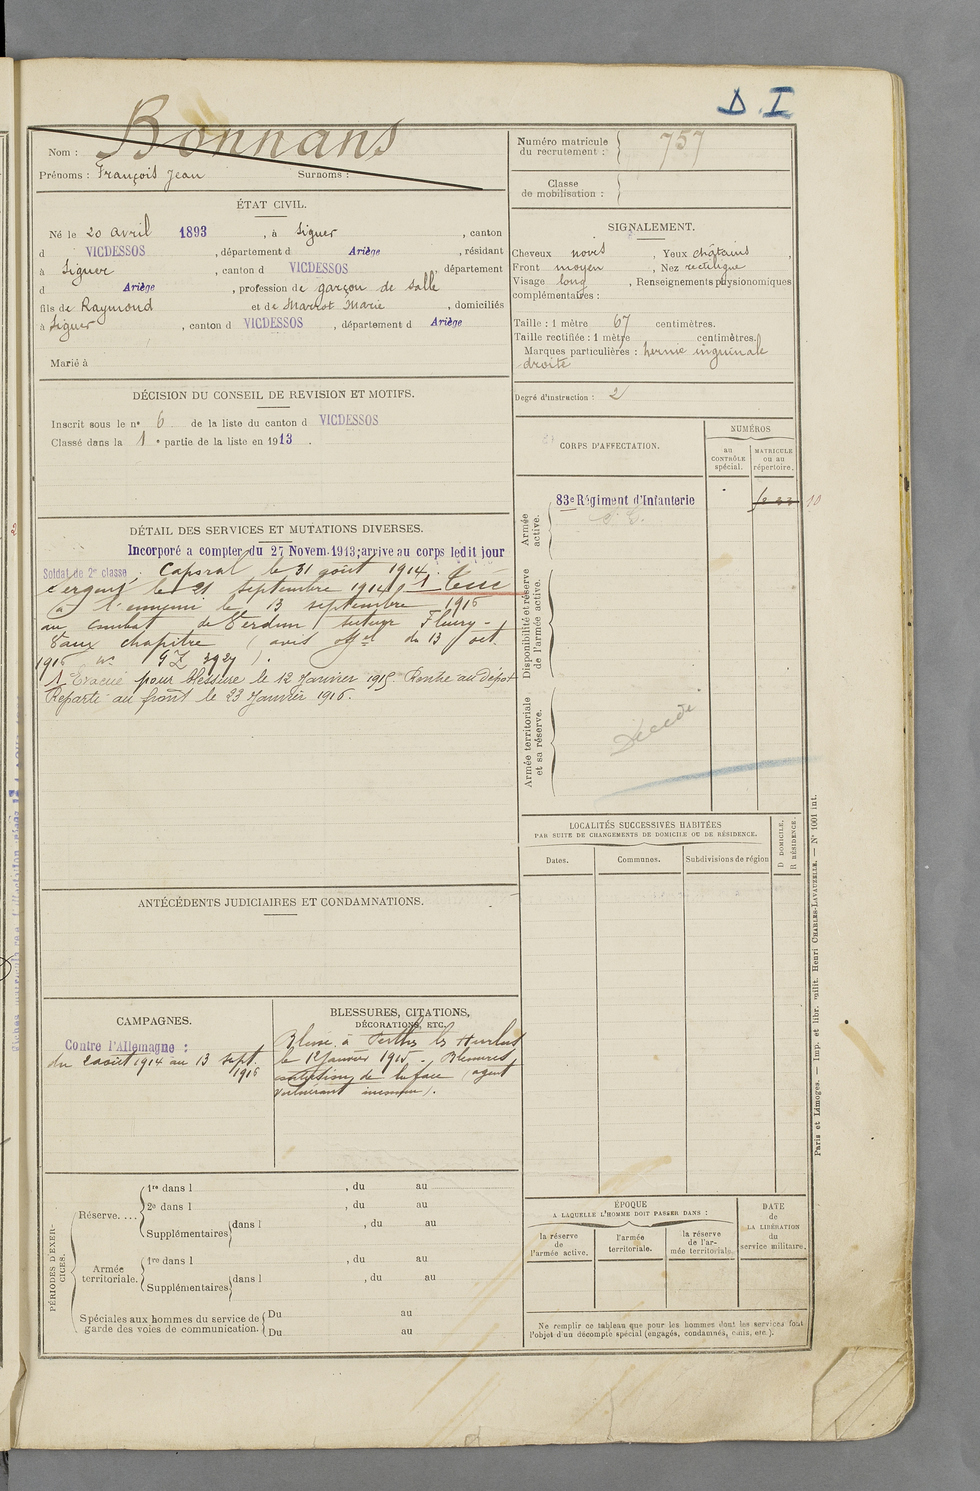 D.I
Nom : Bonnans
Prénoms : François Jean Surnoms :
Numéro matricule du recrutement : 757
Classe de mobilisation :
ÉTAT CIVIL.
Né le 20 avril 1893, à Siguer, canton
d VICDESSOS, département d Ariège, résidant
à Siguer, canton d VICDESSOS, département
d Ariège, profession de garçon de salle
fils de Raymond et de Marrot Marie, domiciliés
à Siguer, canton d VICDESSOS, département d Ariège
Marié à
SIGNALEMENT.
Cheveux noirs, Yeux châtains,
Front moyen, Nez rectiligne
Visage long, Renseignements physionomiques
complémentaires :
Taille : 1 mètre 67 centimètres.
Taille rectifiée : 1 mètre centimètres.
Marques particulières : hernie inguinale
droite
Degré d'instruction : 2
DÉCISION DU CONSEIL DE REVISION ET MOTIFS.
Inscrit sous le nº 6 de la liste du canton d VICDESSOS
Classé dans la 1e partie de la liste en 1913.
DÉTAIL DES SERVICES ET MUTATIONS DIVERSES.
Incorporé a compter du 27 Novem. 1913; arrive au corps ledit jour
Soldat de 2e classe. Caporal le 31 août 1914.
Sergent le 21 septembre 1914. Tué
à l'ennemi le 13 septembre 1916
au combat de Verdun secteur Fleury-
Vaux chapitre (avis du 13 oct.
1916 nº GZ 3927).
1 Evacué pour blessure le 12 Janvier 1915. Rentre au dépôt
Reparti au front le 23 Janvier 1916.
CORPS D'AFFECTATION.
NUMÉROS
au CONTRÔLE spécial.
MATRICULE ou au répertoire.
Armée active.
83e Régiment d'Infanterie
10
Disponibilité et réserve de l'armée active.
Armée territoriale et sa réserve.
Décédé
LOCALITÉS SUCCESSIVES HABITÉES
PAR SUITE DE CHANGEMENTS DE DOMICILE OU DE RÉSIDENCE.
Dates. Communes. Subdivisions de région
D DOMICILE.
R RÉSIDENCE.
ANTÉCÉDENTS JUDICIAIRES ET CONDAMNATIONS.
CAMPAGNES.
Contre l'Allemagne :
du 2 août 1914 au 13 sept.
1916
BLESSURES, CITATIONS,
DÉCORATIONS, ETC.
Blessé à Perthes les Hurlus
le 12 Janvier 1915. Blessures,
de la face (agent
vulnérant inconnu).
PÉRIODES D'EXERCICES.
Réserve....
1re dans l , du au
2e dans l , du au
Supplémentaires dans l , du au
Armée territoriale.
1re dans l , du au
Supplémentaires dans l , du au
Spéciales aux hommes du service de garde des voies de communication.
Du au
Du au
ÉPOQUE
A LAQUELLE L'HOMME DOIT PASSER DANS :
la réserve de l'armée active.
l'armée territoriale.
la réserve de l'armée territoriale.
DATE de LA LIBÉRATION du service militaire.
Ne remplir ce tableau que pour les hommes dont les services font
l'objet d'un décompte spécial (engagés, condamnés, omis, etc.).
Paris et Limoges. — Imp. et libr. milit. Henri CHARLES-LAVAUZELLE. — Nº 1001 int.